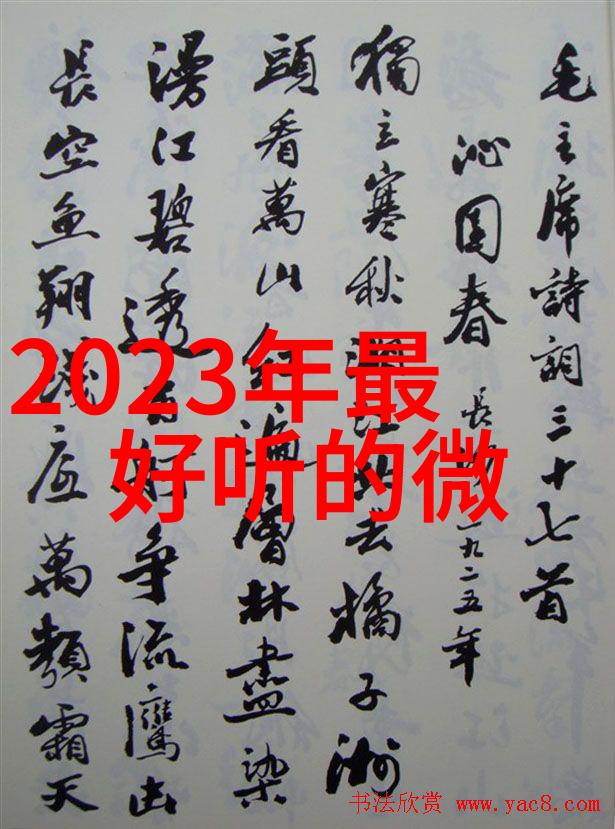 毛主席詩詞三十七首
沁園春 長沙 一九二五年
獨立寒秋湘江北去橘子洲
頭看萬山紅遍層林盡染
漫江碧透百舸争流鷹击
長空魚翔淺底萬類霜天
2023年最
好听的微
书法欣赏 www.yac8.com